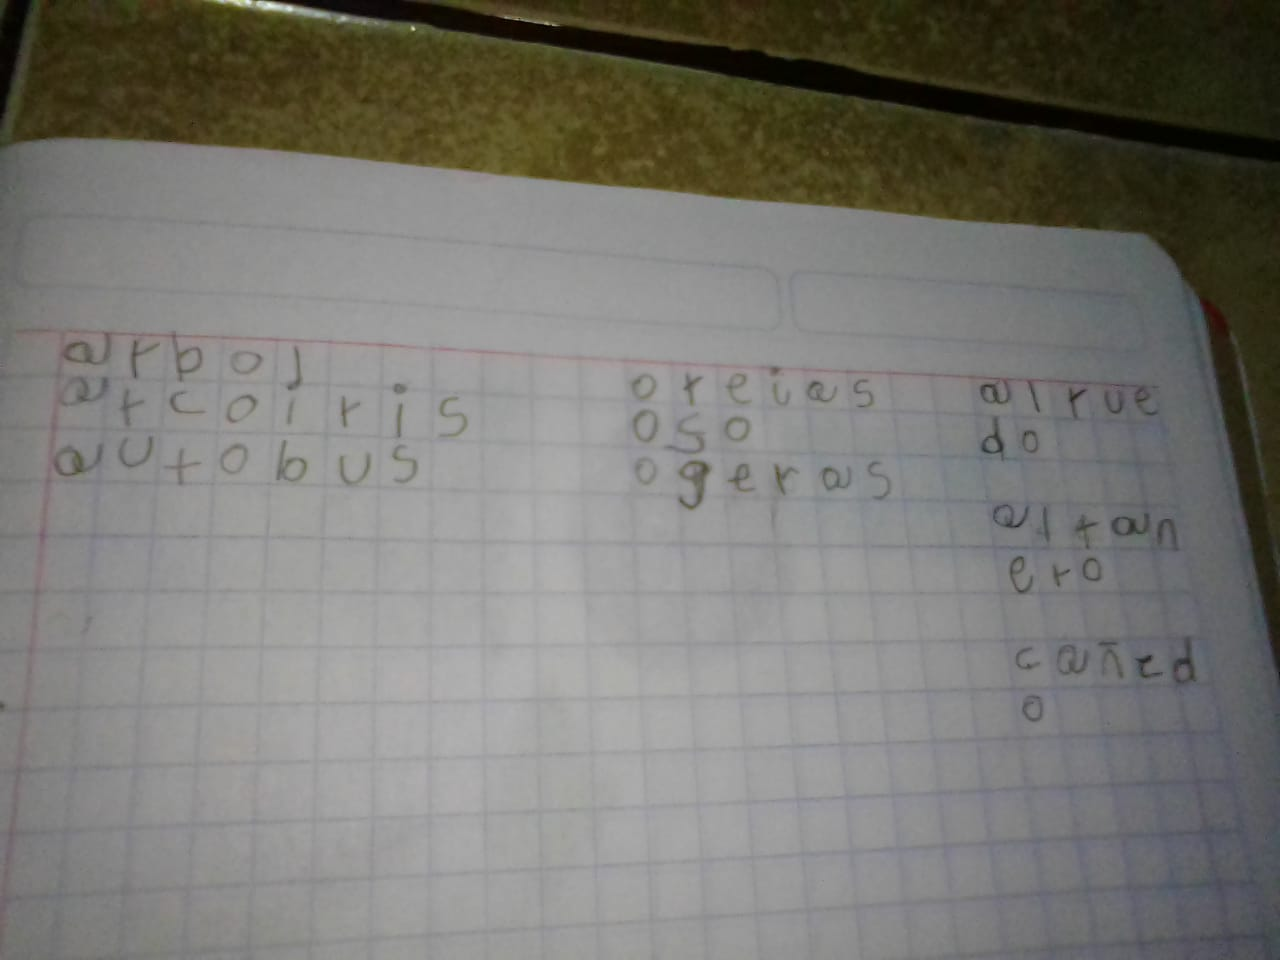 arbol
arcoiris
autobus
oreias
oso
ogeras
alrue
do
altan
ero
cañed
o